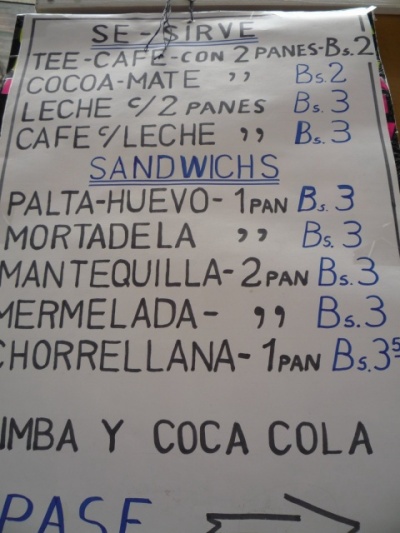 SE-SIRVE
TEE-CAFE-CON 2 PANES-Bs.2
COCOA-MATE ,, Bs.2
LECHE c/2 PANES Bs.3
CAFE c/LECHE ,, Bs.3
SANDWICHS
PALTA-HUEVO-1PAN Bs.3
MORTADELA ,, Bs.3
MANTEQUILLA-2PAN Bs.3
MERMELADA- ,, Bs.3
CHORRELLANA-1PAN Bs.3.5
IMBA Y COCA COLA
PASE